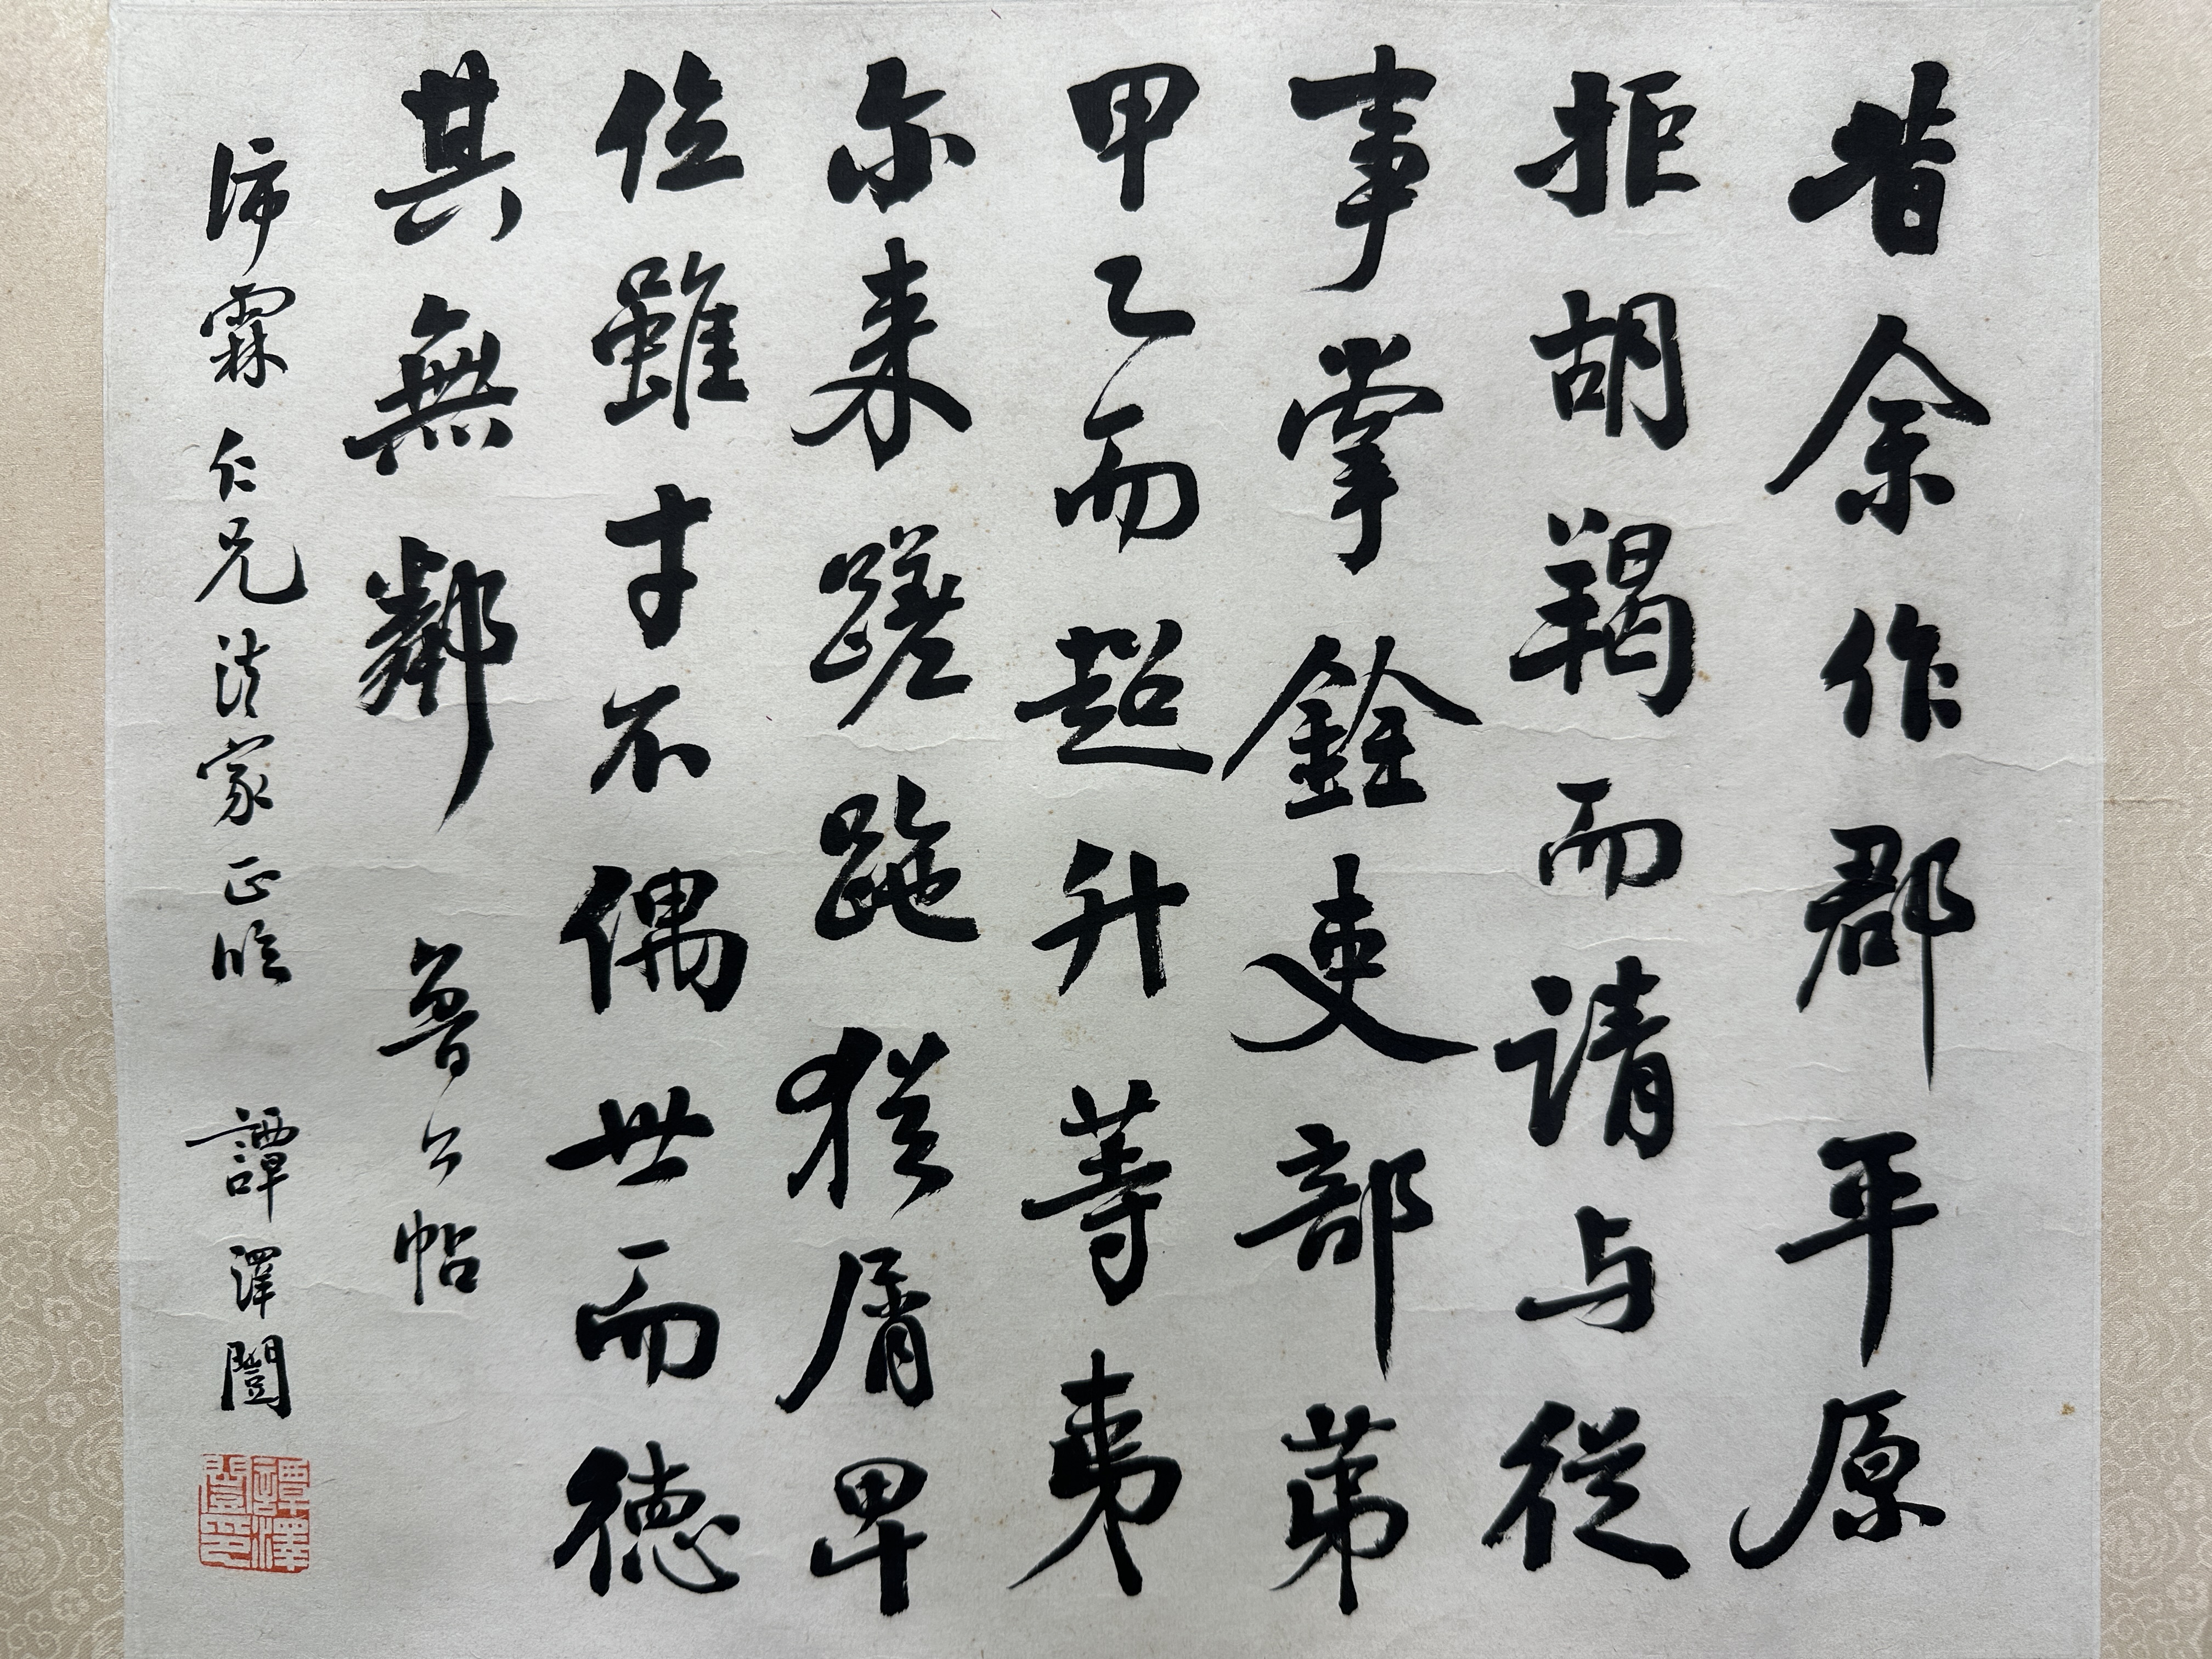 昔余作郡平原
拒胡羯而請与從
事掌銓吏部苐
甲乙而超升等夷
尔来蹉跎猶屑卑
位雖才不偶世而德
其無鄰 魯公帖
沛霖仁兄法家正臨 譚澤闓
譚澤闓印